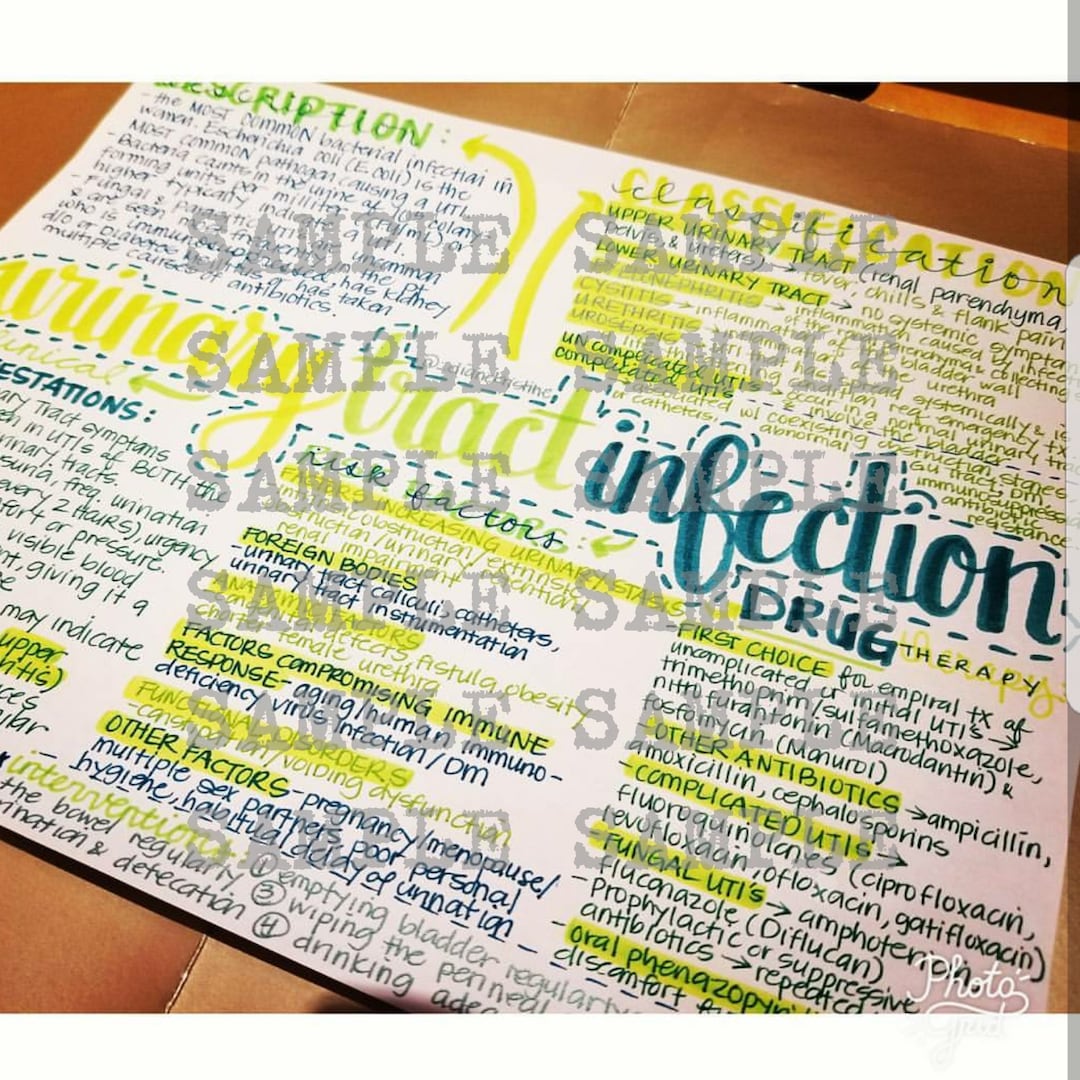 DESCRIPTION:
- the MOST common bacterial infection in
women. Escherichia coli (E. coli) is the
MOST common pathogen causing a UTI.
- Bacteria counts in the urine of 10⁵ colony
forming units per milliliter (cfu/ml) or
higher typically indicates a UTI.
- Fungal & parasitic UTI's are uncommon
& are seen most frequently in the pt
who is immunosuppressed, has kidney
d/o or Diabetes, or has taken
multiple courses of antibiotics.
classification
UPPER URINARY TRACT (renal parenchyma,
pelvis & ureters) → fever, chills & flank pain
LOWER URINARY TRACT → no systemic symptoms
PYELONEPHRITIS → inflammation caused by infection
of the parenchyma & collecting
CYSTITIS → inflammation of the bladder wall
URETHRITIS → inflammation of the urethra
UROSEPSIS → UTI that has spread systemically & is
req. emergency tx
UNcomplicated UTIs → occur in normal urinary tract
& involve the bladder
complicated UTIs → associated w/ coexisting obstruction, stones
or catheters, abnormal GU tract, DM
immunosuppression
antibiotic
resistance
urinary tract infection
clinical
ESTATIONS:
ary Tract symptoms
in UTI's of BOTH the
urinary tracts.
freq. urination
every 2 hours), urgency
or pressure.
visible blood
giving it a
may indicate
upper
risk factors:
FACTORS INCREASING URINARY STASIS
intrinsic obstruction/extrinsic
obstruction/urinary retention/
renal impairment
FOREIGN BODIES
- urinary tract calculi, catheters,
urinary tract instrumentation
ANATOMIC FACTORS
- congenital defects, fistula, obesity
shorter female urethra
FACTORS COMPROMISING IMMUNE
RESPONSE - aging/human immuno-
deficiency virus infection/DM
FUNCTIONAL DISORDERS
- constipation/voiding dysfunction
OTHER FACTORS - pregnancy/menopause/
multiple sex partners, poor personal
hygiene, habitual delay of urination
DRUG THERAPY:
FIRST CHOICE for empiral tx of
uncomplicated or initial UTI's →
trimethoprim/sulfamethoxazole,
nitrofurantoin (Macrodantin) &
fosfomycin (Monurol)
OTHER ANTIBIOTICS → ampicillin,
amoxicillin, cephalosporins
- COMPLICATED UTIs →
fluoroquinolones (ciprofloxacin,
levofloxacin, ofloxacin, gatifloxacin)
- FUNGAL UTI's → amphotericin
fluconazole (Diflucan)
- Prophylactic or suppressive
antibiotics → repeated
- oral phenazopyri
discomfort
interventions: ① emptying bladder regularly
the bowel regularly ③ wiping the perineal
urination & defecation ④ drinking
SAMPLE SAMPLE
SAMPLE SAMPLE
SAMPLE SAMPLE
SAMPLE SAMPLE
SAMPLE SAMPLE
SAMPLE SAMPLE
Photo
Grid